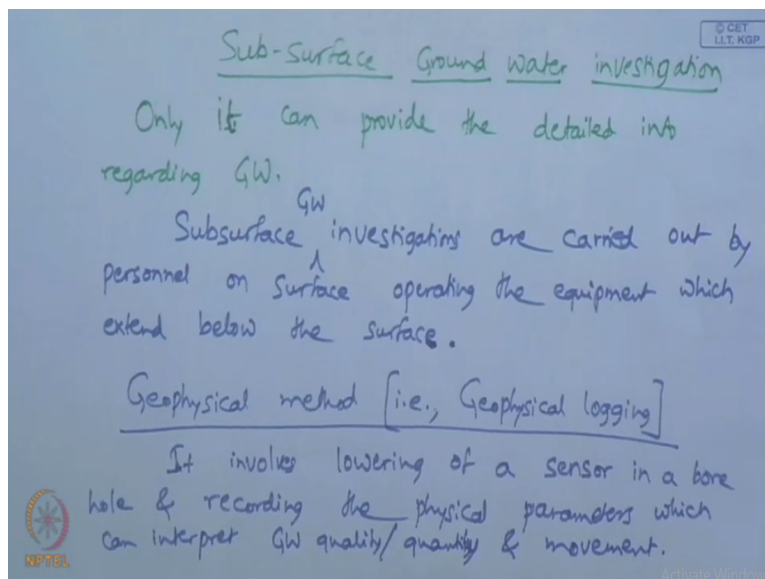 © CET
I.I.T. KGP
Sub-surface Ground water investigation
Only it can provide the detailed info
regarding GW.
GW
Subsurface ^ investigations are carried out by
personnel on surface operating the equipment which
extend below the surface.
Geophysical method [i.e., Geophysical logging]
It involves lowering of a sensor in a bore
hole & recording the physical parameters which
can interpret GW quality/quantity & movement.
NPTEL
Activate Windows